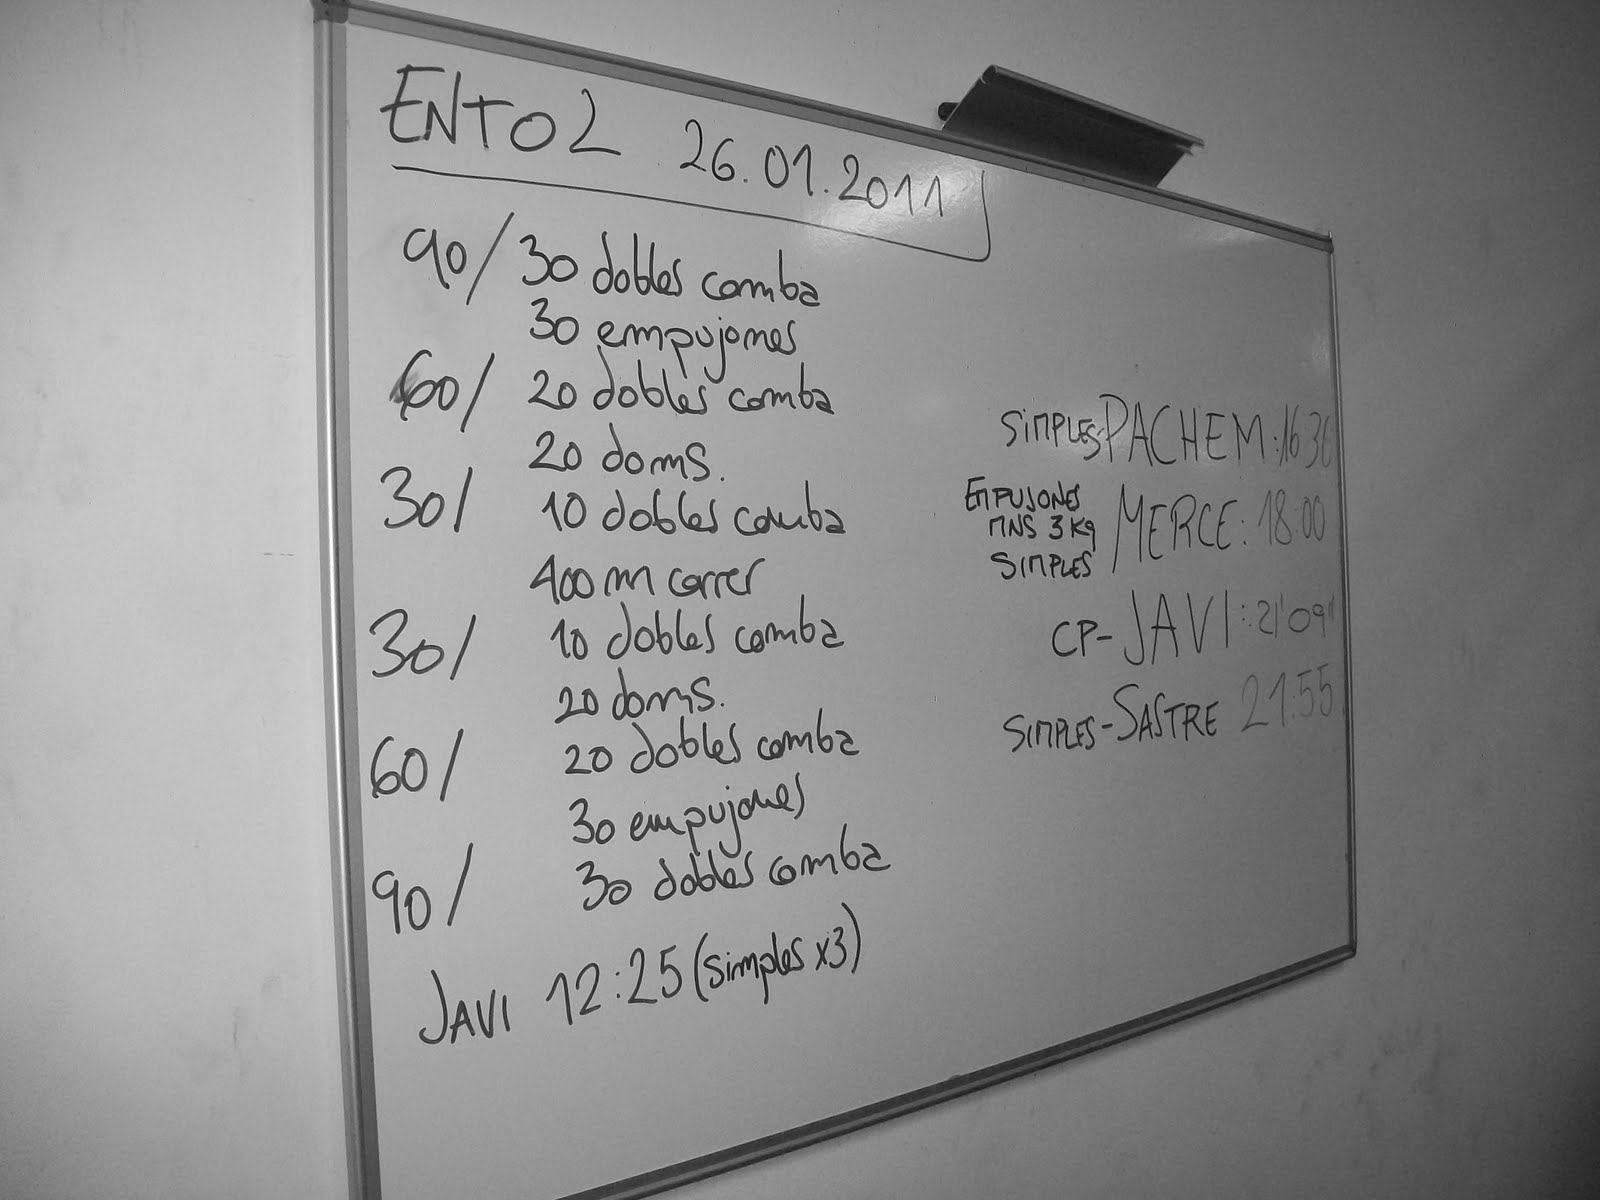 ENTO2 26.01.2011
90/ 30 dobles comba
30 empujones
60/ 20 dobles comba
20 doms.
30/ 10 dobles comba
400 m correr
30/ 10 dobles comba
20 doms.
60/ 20 dobles comba
30 empujones
90/ 30 dobles comba
JAVI 12:25 (simples x3)
SIMPLES-PACHEM: 16:36
EMPUJONES
MNS 3 Kg
SIMPLES
MERCE: 18:00
CP-JAVI: 21'09"
SIMPLES-SASTRE 21:55